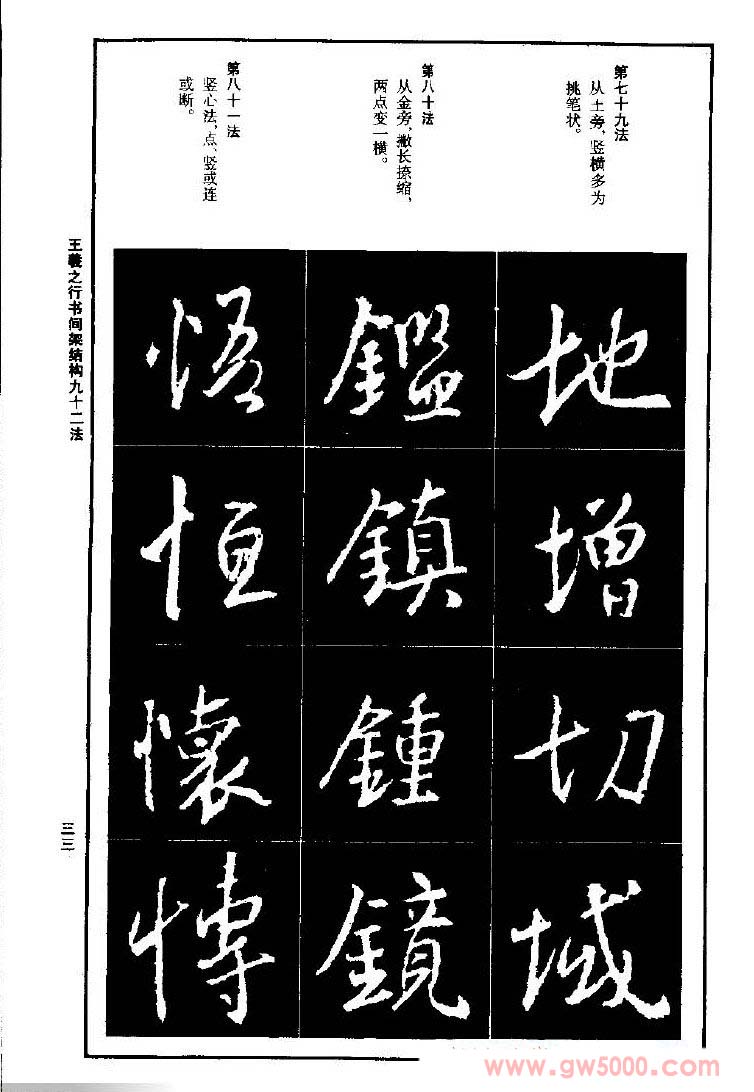 第七十九法
从土旁，竖横多为
挑笔状。
地
增
切
域
第八十法
从金旁，撇长捺缩，
两点变一横。
鑑
鎮
鍾
鏡
第八十一法
竖心法，点、竖或连
或断。
悟
恒
懷
慱
王羲之行书间架结构九十二法
三三
www.gw5000.com